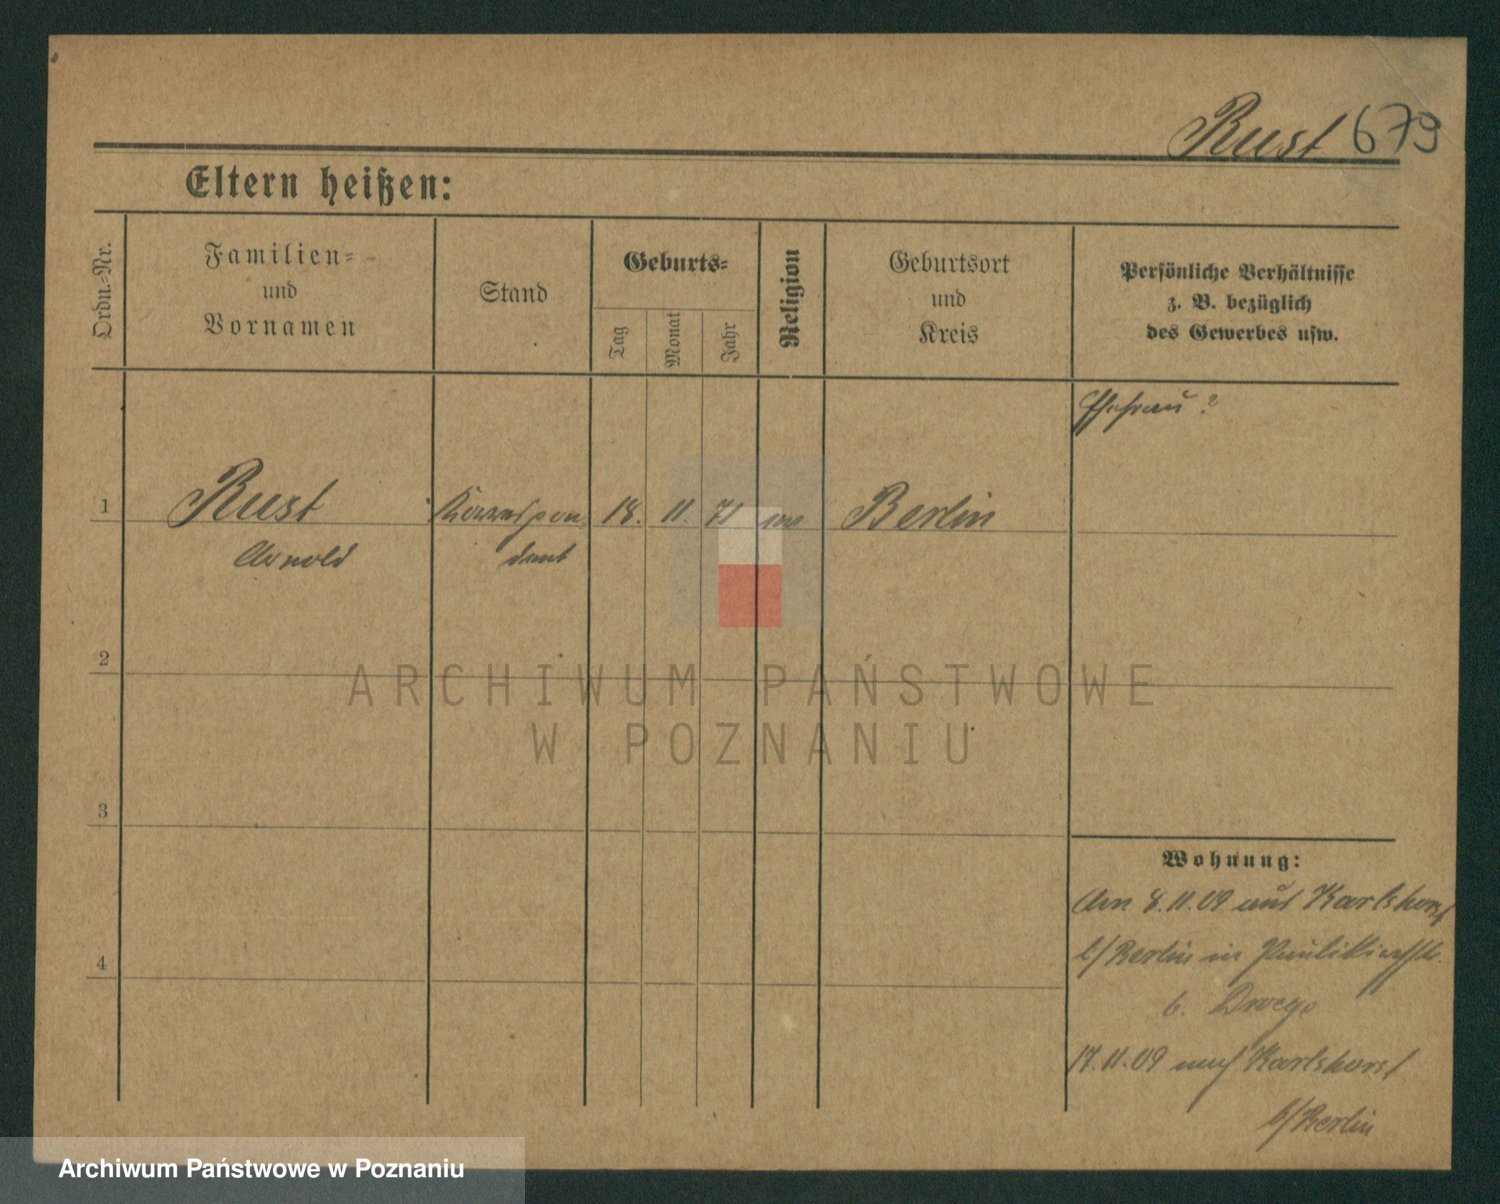 Rust 679
Eltern heißen:
Ordn.-Nr.
Familien-
und
Vornamen
Stand
Geburts-
Tag
Monat
Jahr
Religion
Geburtsort
und
Kreis
Persönliche Verhältnisse
z. B. bezüglich
des Gewerbes usw.
Ehefrau?
1
Rust
Korrespon-
18. 11. 71
Berlin
Arnold
dent
2
ARCHIWUM PAŃSTWOWE
W POZNANIU
3
Wohnung:
Am 8.11.09 aus Karlshorst
b/Berlin in Paulikirchstr.
4
b. Droege
17.11.09 nach Karlshorst
b/Berlin
Archiwum Państwowe w Poznaniu